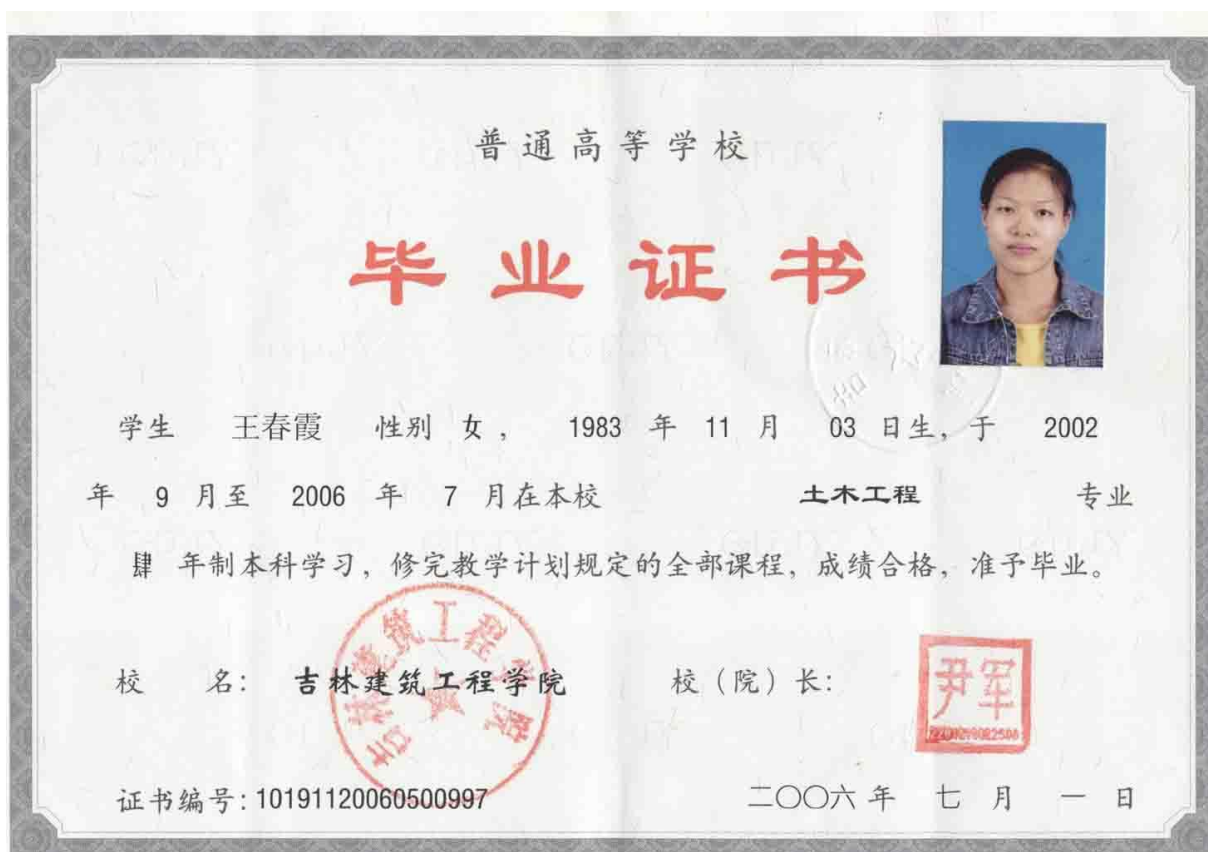 普通高等学校
毕业证书
学生 王春霞 性别 女, 1983 年 11 月 03 日生, 于 2002
年 9 月至 2006 年 7 月在本校 土木工程 专业
肆 年制本科学习, 修完教学计划规定的全部课程, 成绩合格, 准予毕业。
校 名: 吉林建筑工程学院 校(院)长:
吉林建筑工程学院
尹军
证书编号: 101911200605000997
二〇〇六 年 七 月 一 日